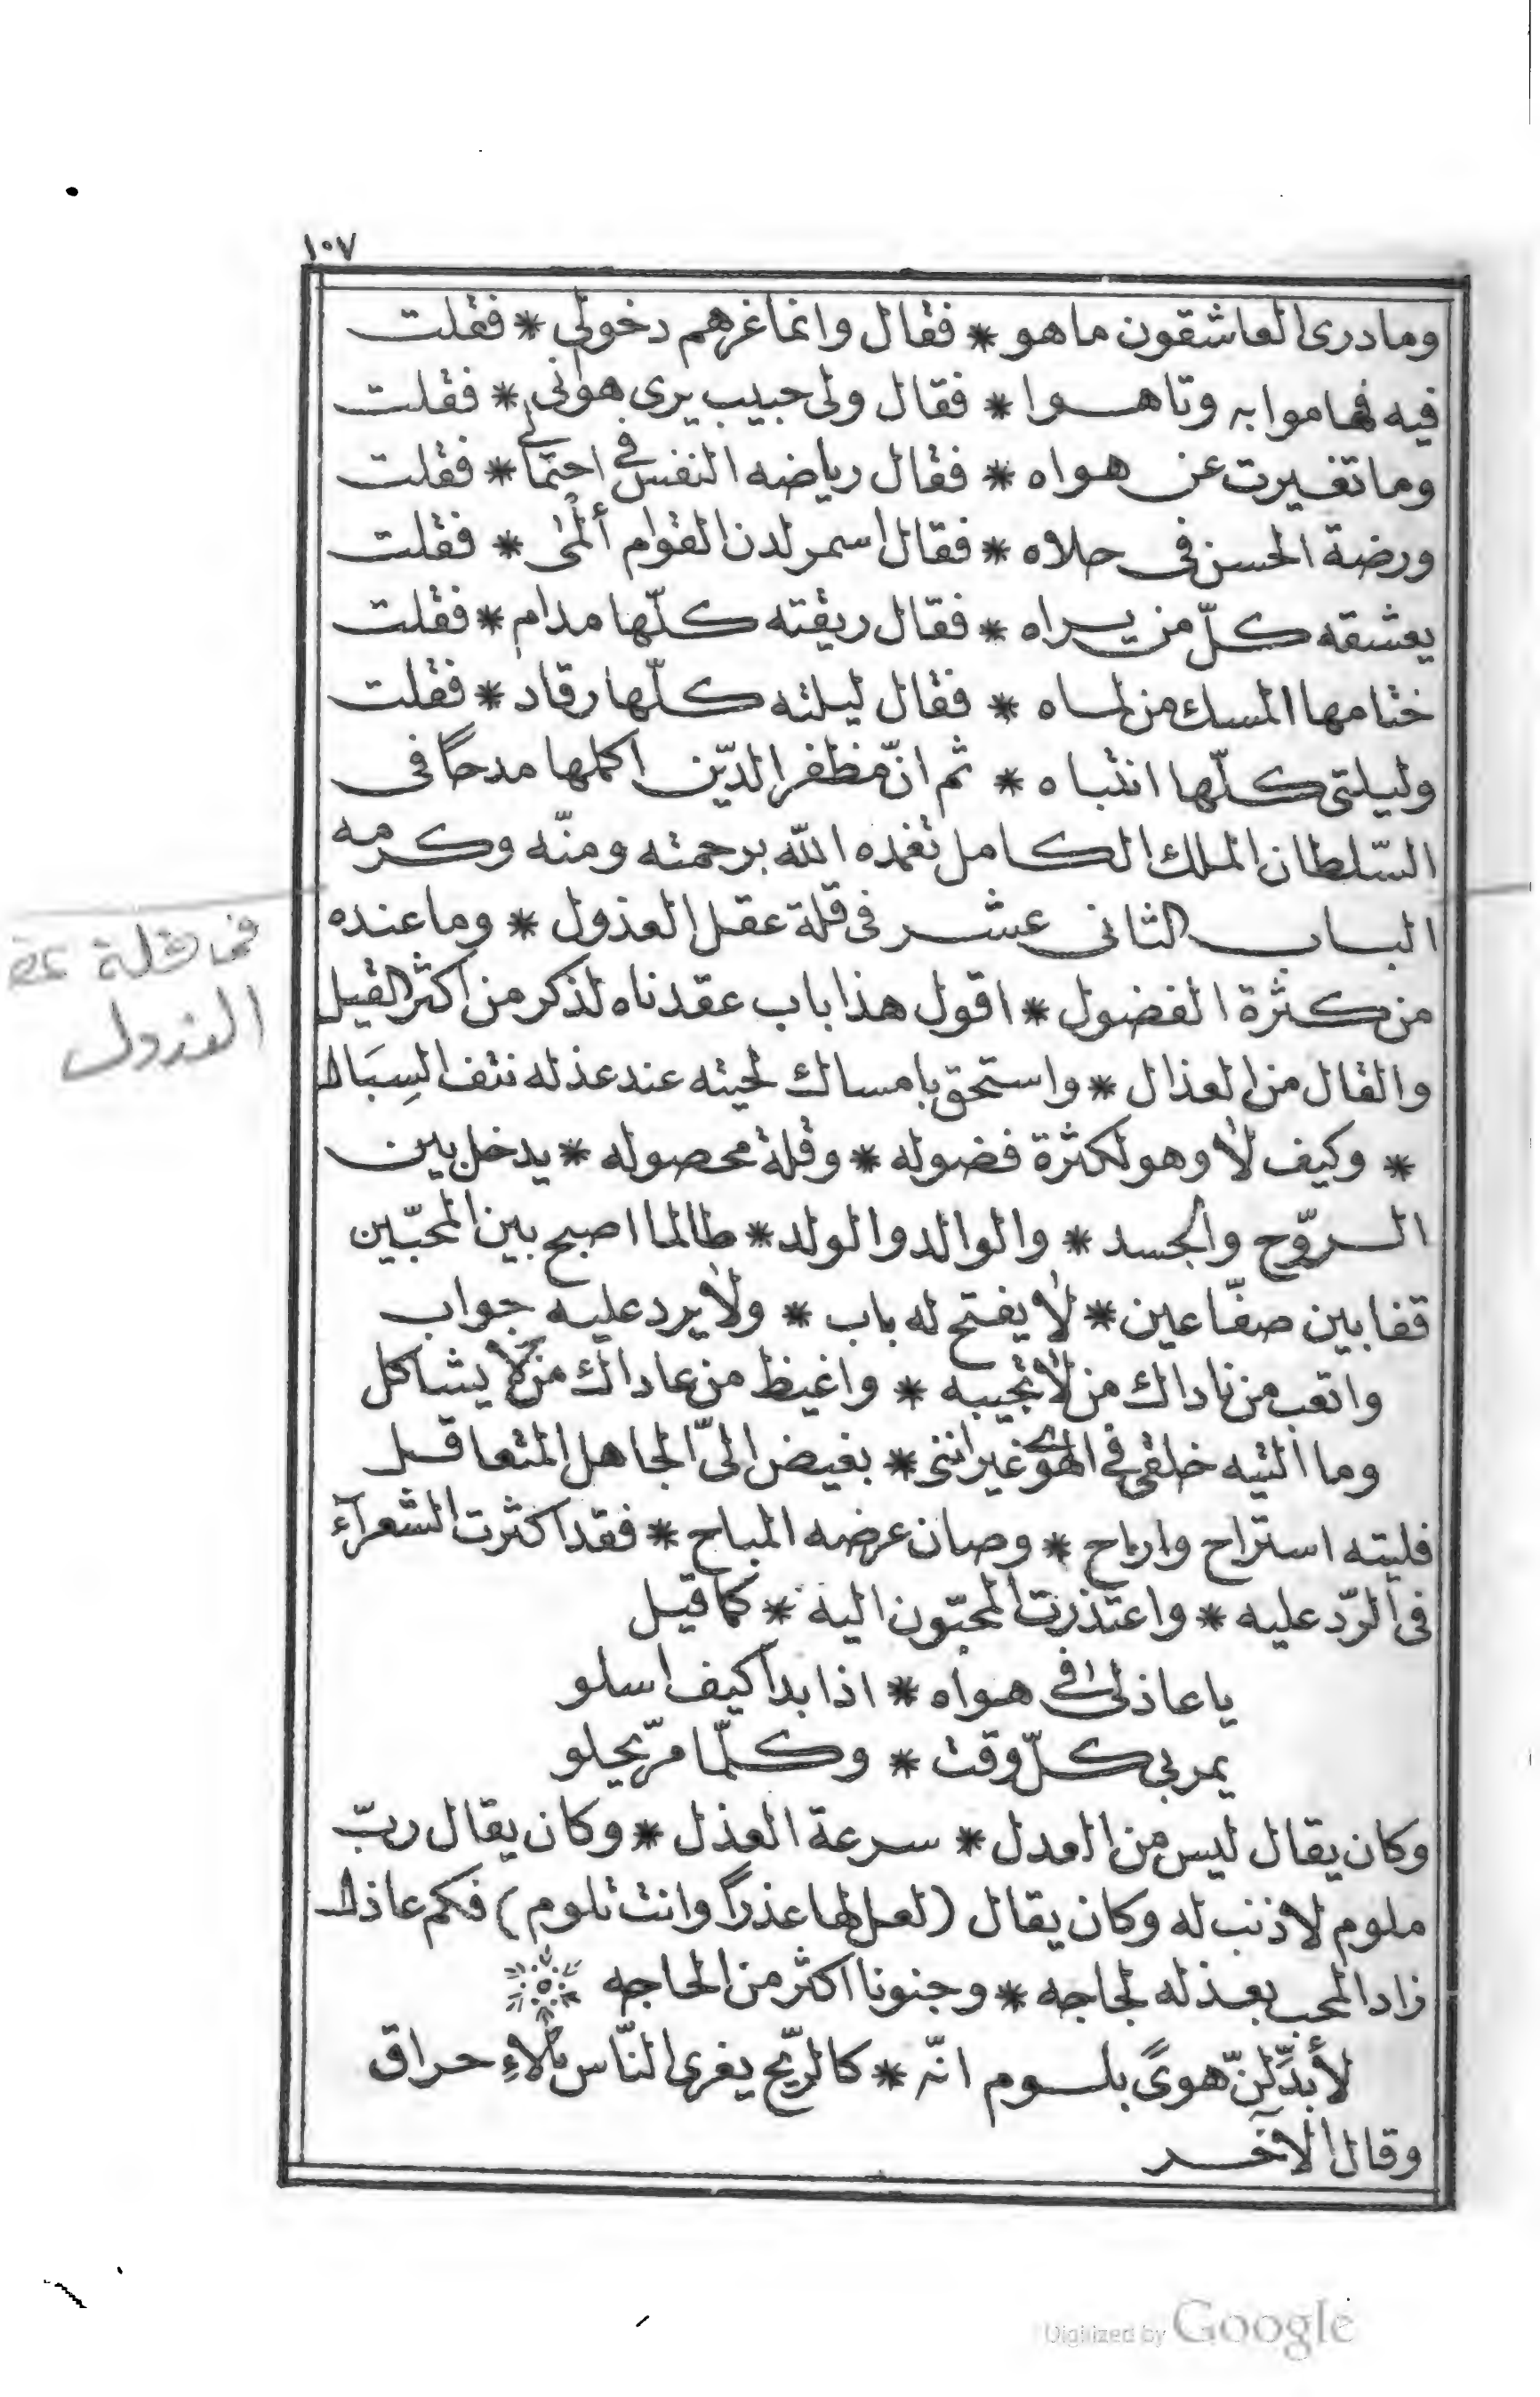 ١٠٧
وما درى العاشقون ما هو * فقال وانما غرهم دخولى * فقلت
فيه فهاموا به وتاهوا * فقال ولى حبيب يرى هوانى * فقلت
وما تغيرت عن هواه * فقال رياضه النفس فى احتمالى * فقلت
ورضة الحسن فى حلاه * فقال اسمر لدن القوام ألمى * فقلت
يعشقه كلّ من يراه * فقال ريقته كلّها مدام * فقلت
ختامها المسك من لماه * فقال ليلته كلّها رقاد * فقلت
وليلتى كلّها انتباه * ثم انّ مظفر الدّين اكملها مدحاً فى
السّلطان الملك الكامل تغمده الله برحمته ومنّه وكرمه
الباب الثانى عشر فى قلة عقل العذول * وما عنده
من كثرة الفضول * اقول هذا باب عقدناه لذكر من اكثر القيل
والقال من العذال * واستحق بامساك لحيته عند عذله نتف السِبَال
* وكيف لا وهو لكثرة فضوله * وقلة محصوله * يدخل بين
الروّح والجسد * والوالد والولد * طالما اصبح بين المحبّين
قفا بين صفّاعين * لا يفتح له باب * ولا يرد عليه جواب
واتعب من ناداك من لا تجيبه * واغيظ من عاداك من لا يشاكل
وما التيه خلقى فى الهوى غير اننى * بغيض الىّ الجاهل المتعاقل
فليته استراح واراح * وصان عرضه المباح * فقد اكثرت الشعرآء
فى الردّ عليه * واعتذرت المحبّون اليه * كما قيل
يا عاذلى فى هواه * اذا بدا كيف اسلو
يمر بى كلّ وقت * وكلّما مرّ يحلو
وكان يقال ليس من العدل * سرعة العذل * وكان يقال ربّ
ملوم لا ذنب له وكان يقال (لعل لها عذراً وانت تلوم) فكم عاذل
زاد المحب بعذله لجاجه * وجنونا اكثر من الحاجه
هوىً بلوم انّه * كالرّيح يغرى النّاس بالاءحراق
وقال الآخر
فى قلة عقل
العذول
Digitized by Google